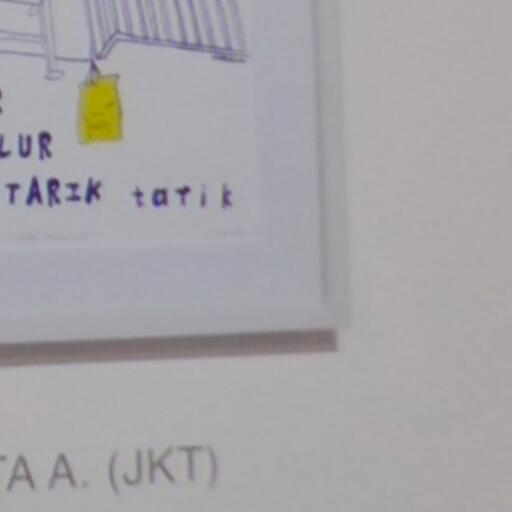 LUR
TARIK tarik
TA A. (JKT)